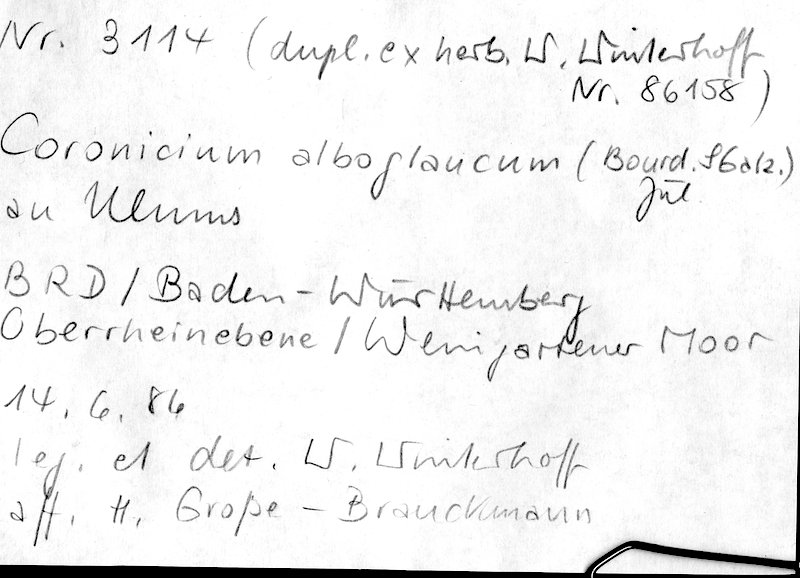 Nr. 3114 (dupl. ex herb. W. Winterhoff
Nr. 86158)
Coronicium alboglaucum (Bourd. & Galz.)
Jül.
an Ulmus
BRD / Baden-Württemberg
Oberrheinebene / Weingartener Moor
14. 6. 86
leg. et det. W. Winterhoff
aff. H. Große-Brauckmann